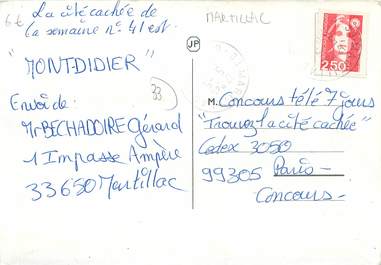 6€
La cité cachée de
la semaine n° 41 est
"MONT-DIDIER"
Envoi de:
Mr BECHADOIRE Gérard
1 Impasse Ampère
33650 Martillac
33
MARTILLAC
JP
2,50
M. Concours télé 7 jours
"Trouvez la cité cachée"
Cedex 3050
99305 Paris-
Concours-